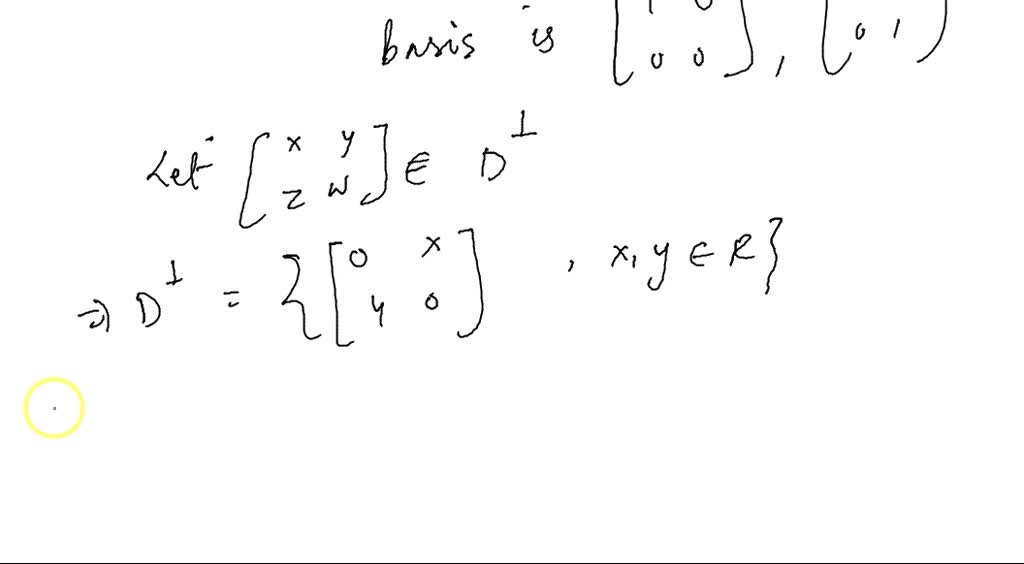 basis is [1 0 0 0], [0 1]
Let [x y z w] ∈ D⊥
⇒ D⊥ = {[0 x y 0], x, y ∈ R}